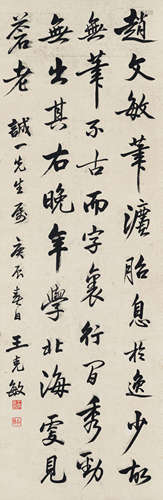 趙文敏筆灋胎息於逸少故
無筆不古而字裏行間秀勁
無出其右晚年學北海更見
蒼老 誠一先生屬 庚辰春日 王克敏